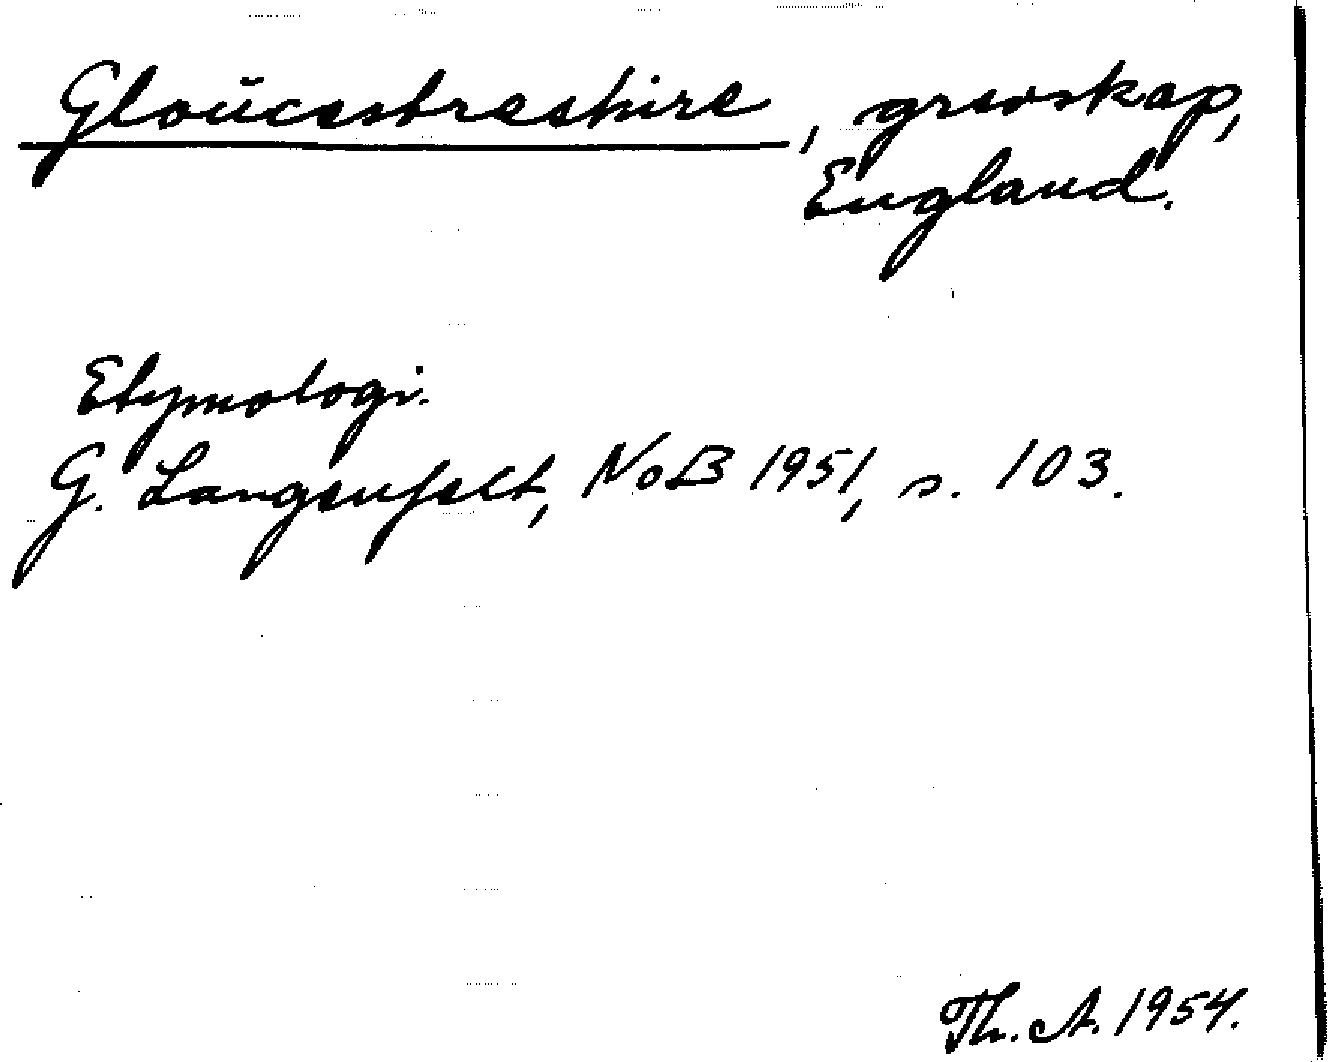 Gloucestreshire, grevskap,
England.
Etymologi.
G. Langenfelt, NoB 1951, s. 103.
Th. A. 1954.